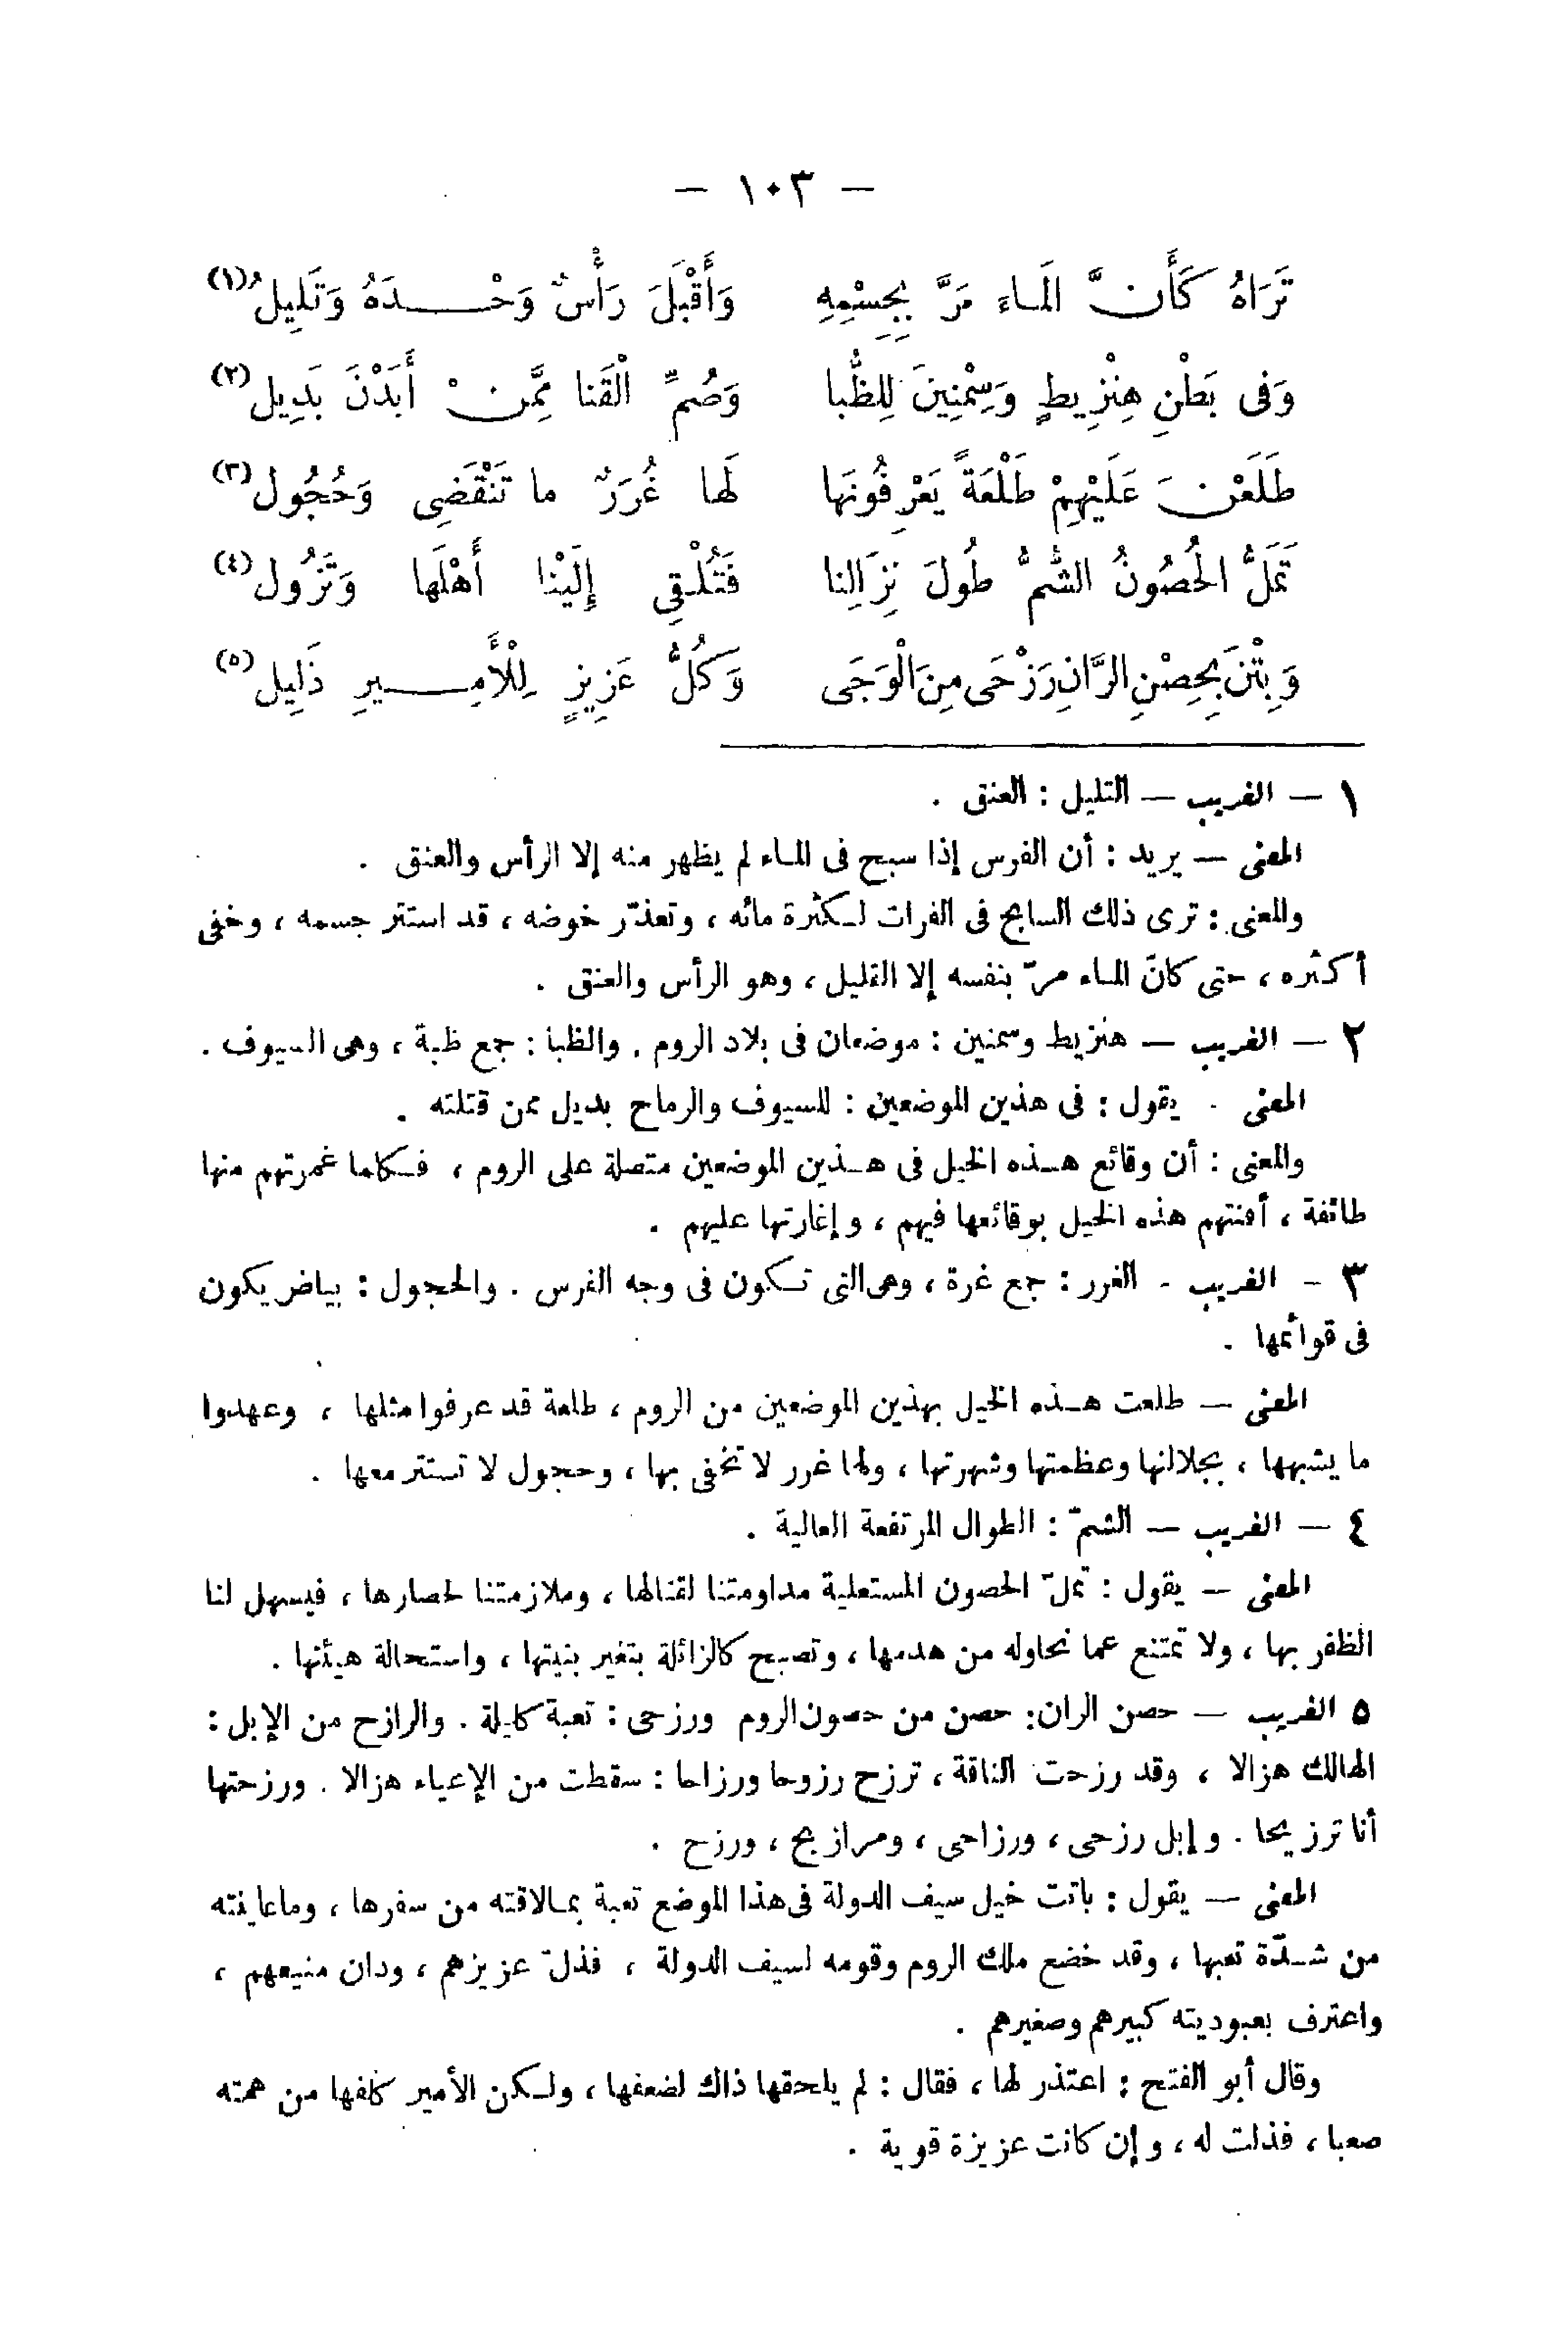 — ١٠٣ —
تَرَاهُ كَأَنَّ الْمَاءَ مَرَّ بِجِسْمِهِ وَأَقْبَلَ رَأْسٌ وَحْدَهُ وَتَلِيلُ (١)
وَفِى بَطْنِ هِنْزِيطٍ وَسِمْنِينَ لِلظُّبا وَصُمِّ الْقَنا مِمَّنْ أَبَدْنَ بَدِيلُ (٢)
طَلَعْنَ عَلَيْهِمْ طَلْعَةً يَعْرِفُونَهَا لَهَا غُرَرٌ ما تَنْقَضِى وَحُجُولُ (٣)
تَمَلُّ الْحُصُونُ الشُّمُّ طُولَ نِزَالِنا فَتُلْقِى إِلَيْنا أَهْلَها وَتَزُولُ (٤)
وَبِتْنَ بِحِصْنِ الرَّانِ رَزْحَى مِنَ الْوَجَى وَكُلُّ عَزِيزٍ لِلْأَمِيرِ ذَلِيلُ (٥)
١ — الغريب — التليل : العنق .
المعنى — يريد : أن الفرس إذا سبح فى الماء لم يظهر منه إلا الرأس والعنق .
والمعنى : ترى ذلك السابح فى الفرات لكثرة مائه ، وتعذّر خوضه ، قد استتر جسمه ، وخفى
أكثره ، حتى كأن الماء مرّ بنفسه إلا القليل ، وهو الرأس والعنق .
٢ — الغريب — هنزيط وسمنين : موضعان فى بلاد الروم . والظبا : جمع ظبة ، وهى السيوف .
المعنى . يقول : فى هذين الموضعين : للسيوف والرماح بديل ممن قتلته .
والمعنى : أن وقائع هذه الخيل فى هذين الموضعين متصلة على الروم ، فكلما غمرتهم منها
طائفة ، أفنتهم هذه الخيل بوقائعها فيهم ، وإغارتها عليهم .
٣ - الغريب - الغرر : جمع غرة ، وهى التى تكون فى وجه الفرس . والحجول : بياض يكون
فى قوائمها .
المعنى — طلعت هذه الخيل بهذين الموضعين من الروم ، طلعة قد عرفوا مثلها ، وعهدوا
ما يشبهها ، بجلالتها وعظمتها وشهرتها ، ولها غرر لا تخفى بها ، وحجول لا تستتر معها .
٤ — الغريب — الشمّ : الطوال المرتفعة العالية .
المعنى — يقول : تملّ الحصون المستعلية مداومتنا لقتالها ، وملازمتنا لحصارها ، فيسهل لنا
الظفر بها ، ولا تمتنع عما نحاوله من هدمها ، وتصبح كالزائلة بتغير بنيتها ، واستحالة هيئتها .
٥ الغريب — حصن الران : حصن من حصون الروم ورزحى : تعبة كليلة . والرازح من الإبل :
الهالك هزالا ، وقد رزحت الناقة ، ترزح رزوحا ورزاحا : سقطت من الإعياء هزالا . ورزحتها
أنا ترزيحا . وإبل رزحى ، ورزاحى ، ومرازيح ، ورزح .
المعنى — يقول : باتت خيل سيف الدولة فى هذا الموضع تعبة بمالاقته من سفرها ، وماعاينته
من شدّة تعبها ، وقد خضع ملك الروم وقومه لسيف الدولة ، فذلّ عزيزهم ، ودان منيعهم ،
واعترف بعبوديته كبيرهم وصغيرهم .
وقال أبو الفتح : اعتذر لها ، فقال : لم يلحقها ذاك لضعفها ، ولكن الأمير كلفها من همته
صعبا ، فذلت له ، وإن كانت عزيزة قوية .